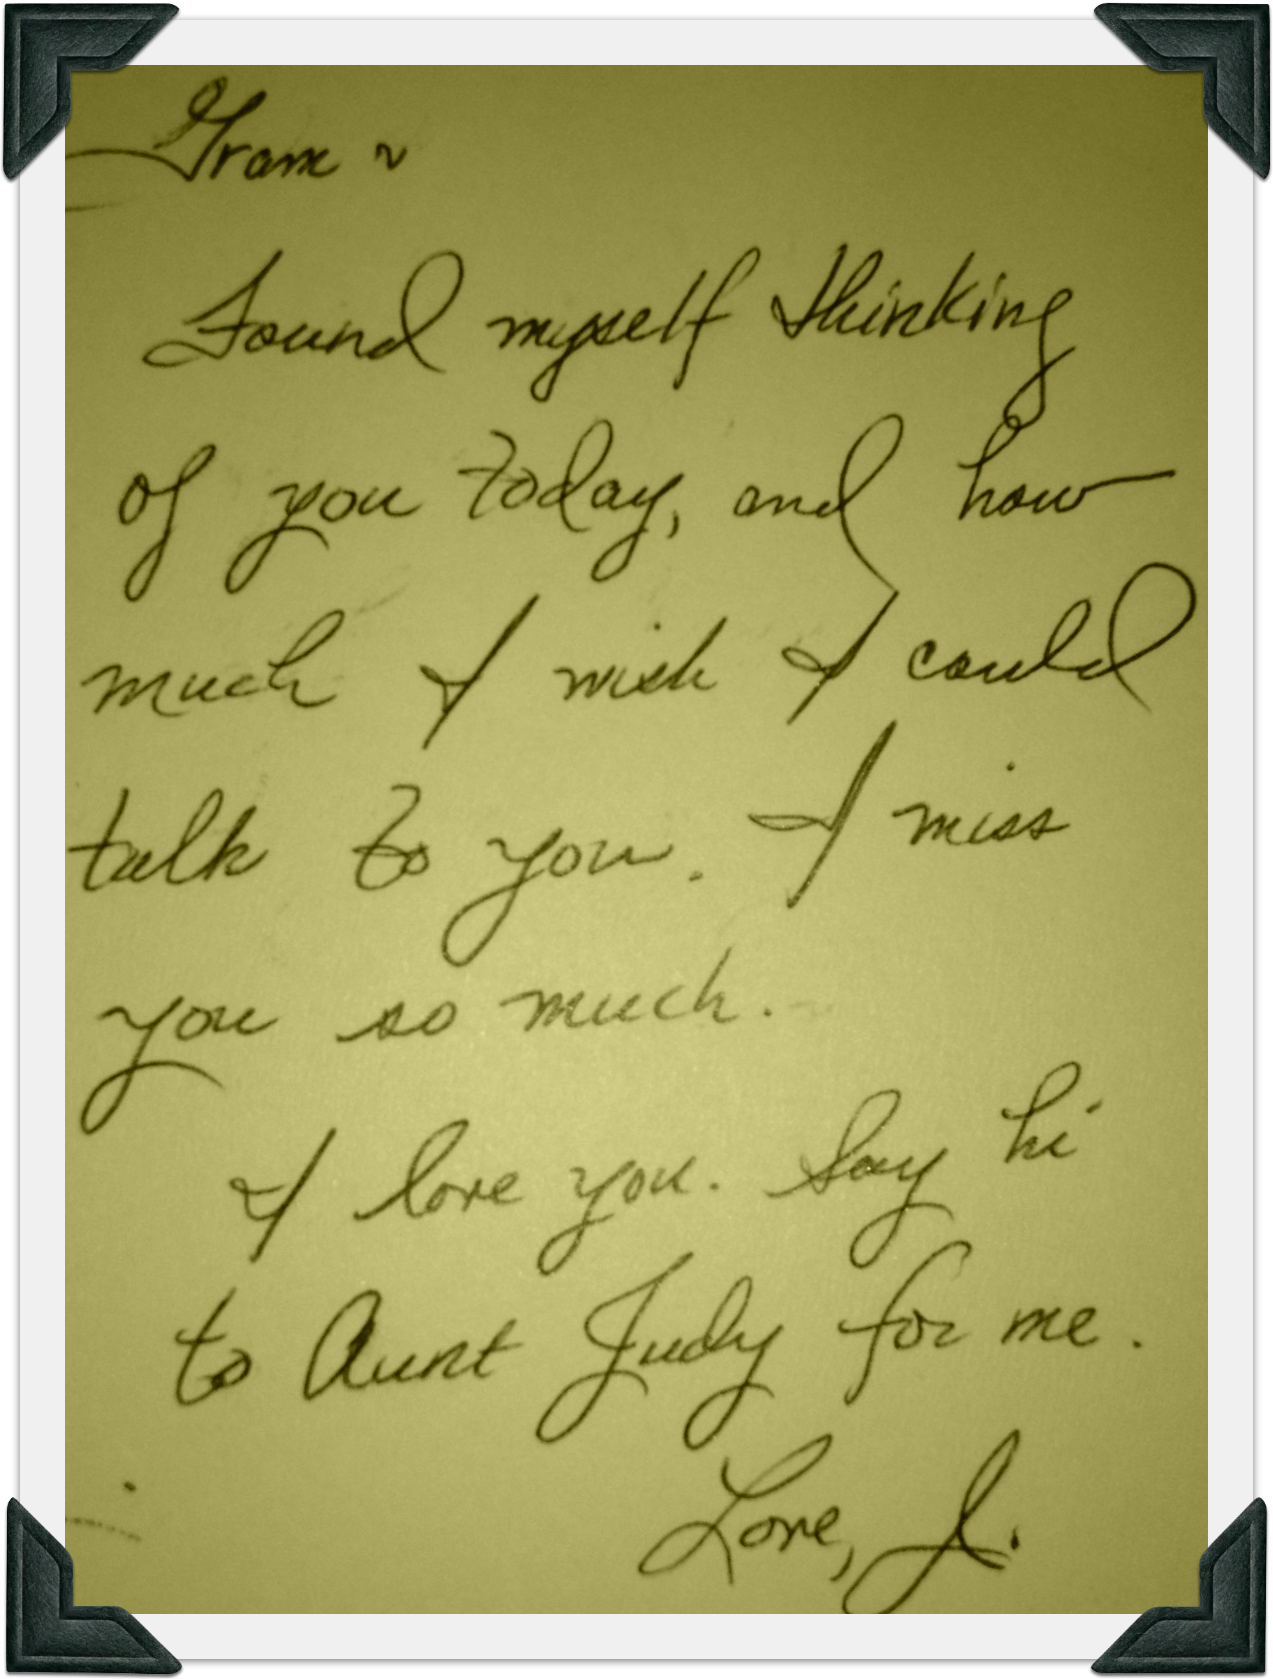 Gram ~
Found myself thinking
of you today, and how
much I wish I could
talk to you. I miss
you so much.
I love you. Say hi
to Aunt Judy for me.
Love, J.